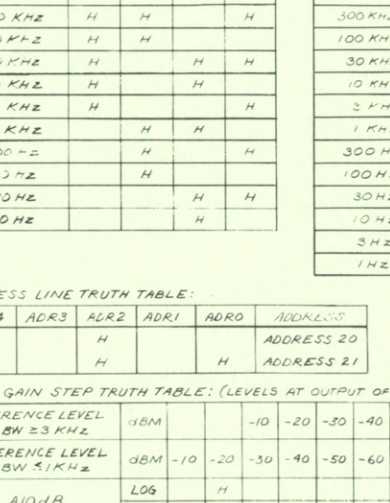 KHZ H H H
KHZ H H
KHZ H H H
KHZ H H
KHZ H H
KHZ H H
H H
HZ H
HZ H H
HZ H
300 KHZ
100 KHZ
30 KHZ
10 KHZ
KH
1 KHZ
300 H
100 HZ
30 HZ
10 HZ
3 HZ
1 HZ
ESS LINE TRUTH TABLE:
4 ADR3 ADR2 ADR1 ADR0 ADDRESS
H ADDRESS 20
H H ADDRESS 21
GAIN STEP TRUTH TABLE: (LEVELS AT OUTPUT OF
ERENCE LEVEL
BW ≥3 KHZ dBM -10 -20 -30 -40
ERENCE LEVEL
BW ≤1 KHZ dBM -10 -20 -30 -40 -50 -60
LOG H
A10dB